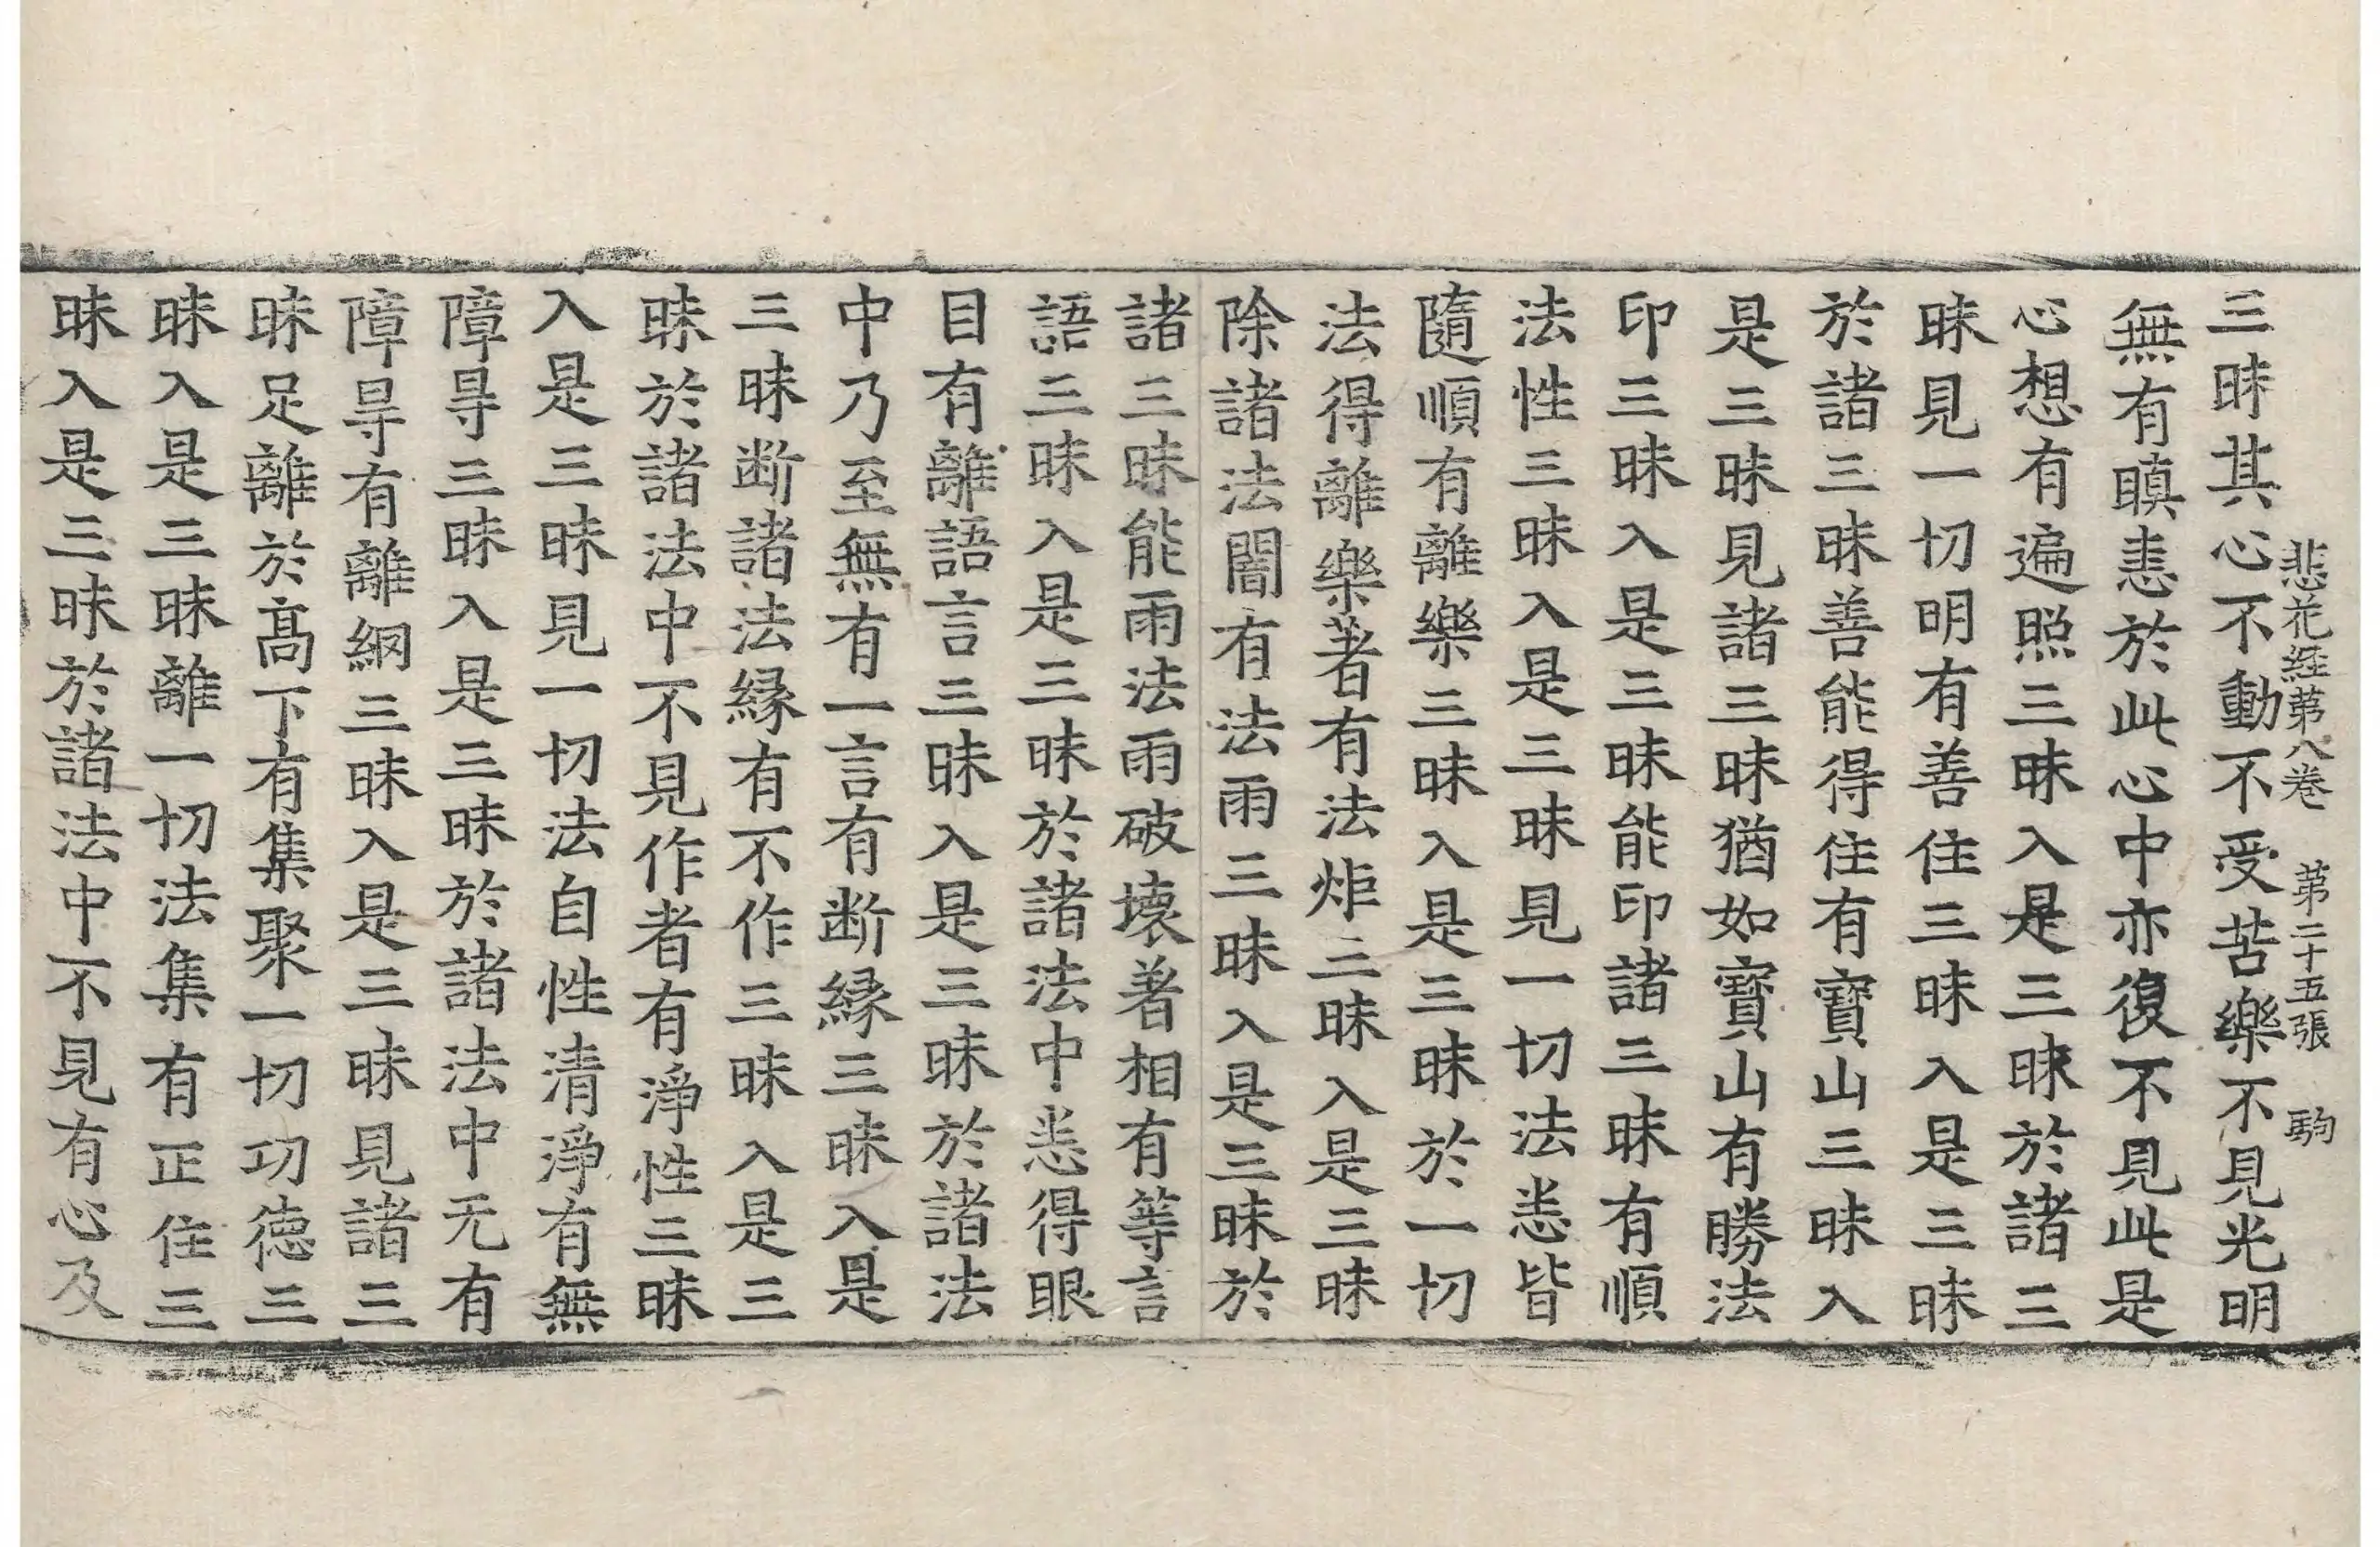 悲花經第八卷　第二十五張　駒
三昧其心不動不受苦樂不見光明
無有瞋恚於此心中亦復不見此是
心想有遍照三昧入是三昧於諸三
昧見一切明有善住三昧入是三昧
於諸三昧善能得住有寶山三昧入
是三昧見諸三昧猶如寶山有勝法
印三昧入是三昧能印諸三昧有順
法性三昧入是三昧見一切法悉皆
隨順有離樂三昧入是三昧於一切
法得離樂著有法炬三昧入是三昧
除諸法闇有法雨三昧入是三昧於
諸三昧能雨法雨破壞著相有等言
語三昧入是三昧於諸法中悉得眼
目有離語言三昧入是三昧於諸法
中乃至無有一言有断緣三昧入是
三昧断諸法緣有不作三昧入是三
昧於諸法中不見作者有淨性三昧
入是三昧見一切法自性清淨有無
障㝵三昧入是三昧於諸法中无有
障㝵有離網三昧入是三昧見諸三
昧足離於高下有集聚一切功德三
昧入是三昧離一切法集有正住三
昧入是三昧於諸法中不見有心及